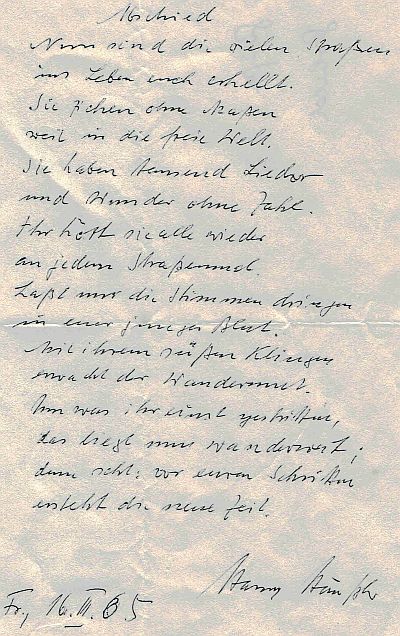 Abschied
Nun sind die vielen Straßen
ins Leben euch erhellt.
Sie ziehen ohne Maßen
weit in die freie Welt.
Sie haben tausend Lieder
und Wunder ohne Zahl.
Ihr hört sie alle wieder
an jedem
Laßt nur die Stimmen dringen
in euer junges Blut.
Mit ihrem süßen Klingen
erwacht der Wandermut.
Um was ihr einst gestritten,
das liegt nun
denn seht: vor euren Schritten
ersteht die neue Zeit.
Fr, 16. III. 65